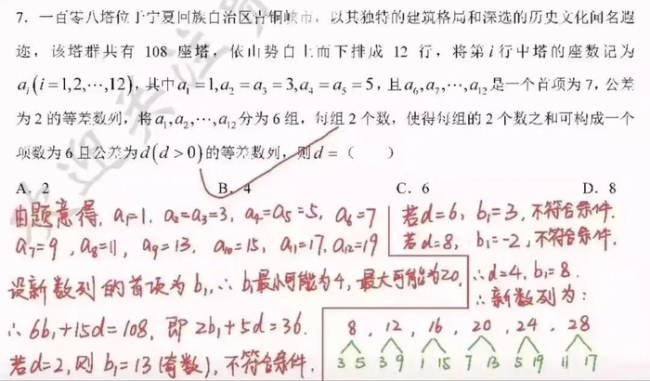 7. 一百零八塔位于宁夏回族自治区青铜峡市，以其独特的建筑格局和深远的历史文化闻名遐
迩，该塔群共有 108 座塔，依山势自上而下排成 12 行，将第 i 行中塔的座数记为
a_i(i=1,2,⋯,12)，其中 a_1=1,a_2=a_3=3,a_4=a_5=5，且 a_6,a_7,⋯,a_12 是一个首项为 7，公差
为 2 的等差数列，将 a_1,a_2,⋯,a_12 分为 6 组，每组 2 个数，使得每组的 2 个数之和可构成一个
项数为 6 且公差为 d(d>0) 的等差数列，则 d=（ ）
A. 2 B. 4 C. 6 D. 8
由题意得, a_1=1. a_2=a_3=3, a_4=a_5=5, a_6=7
a_7=9, a_8=11, a_9=13. a_10=15, a_11=17. a_12=19
设新数列的首项为 b_1, ∴ b_1最小可能为4, 最大可能为20.
∴ 6b_1+15d=108, 即 2b_1+5d=36.
若d=2, 则 b_1=13 (奇数), 不符合条件.
若d=6, b_1=3, 不符合条件.
若d=8, b_1=-2, 不符合条件.
∴d=4, b_1=8.
∴新数列为:
8, 12, 16, 20, 24, 28
3 5 3 9 1 15 7 13 5 19 11 17